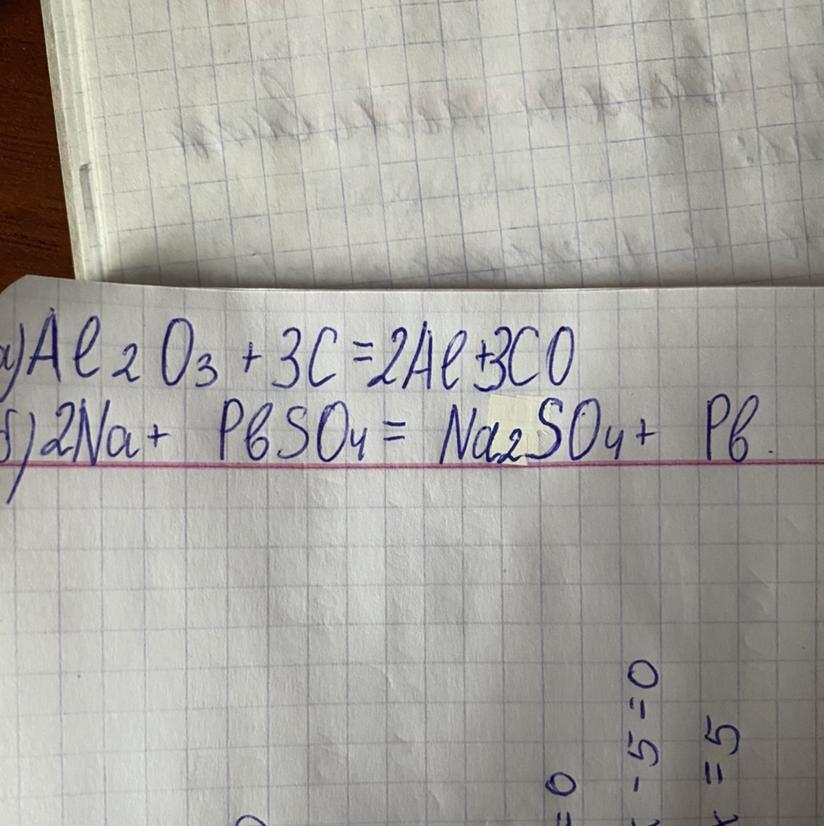 а) Al₂O₃ + 3C = 2Al + 3CO
б) 2Na + PbSO₄ = Na₂SO₄ + Pb.
=0
- 5 = 0
x = 5